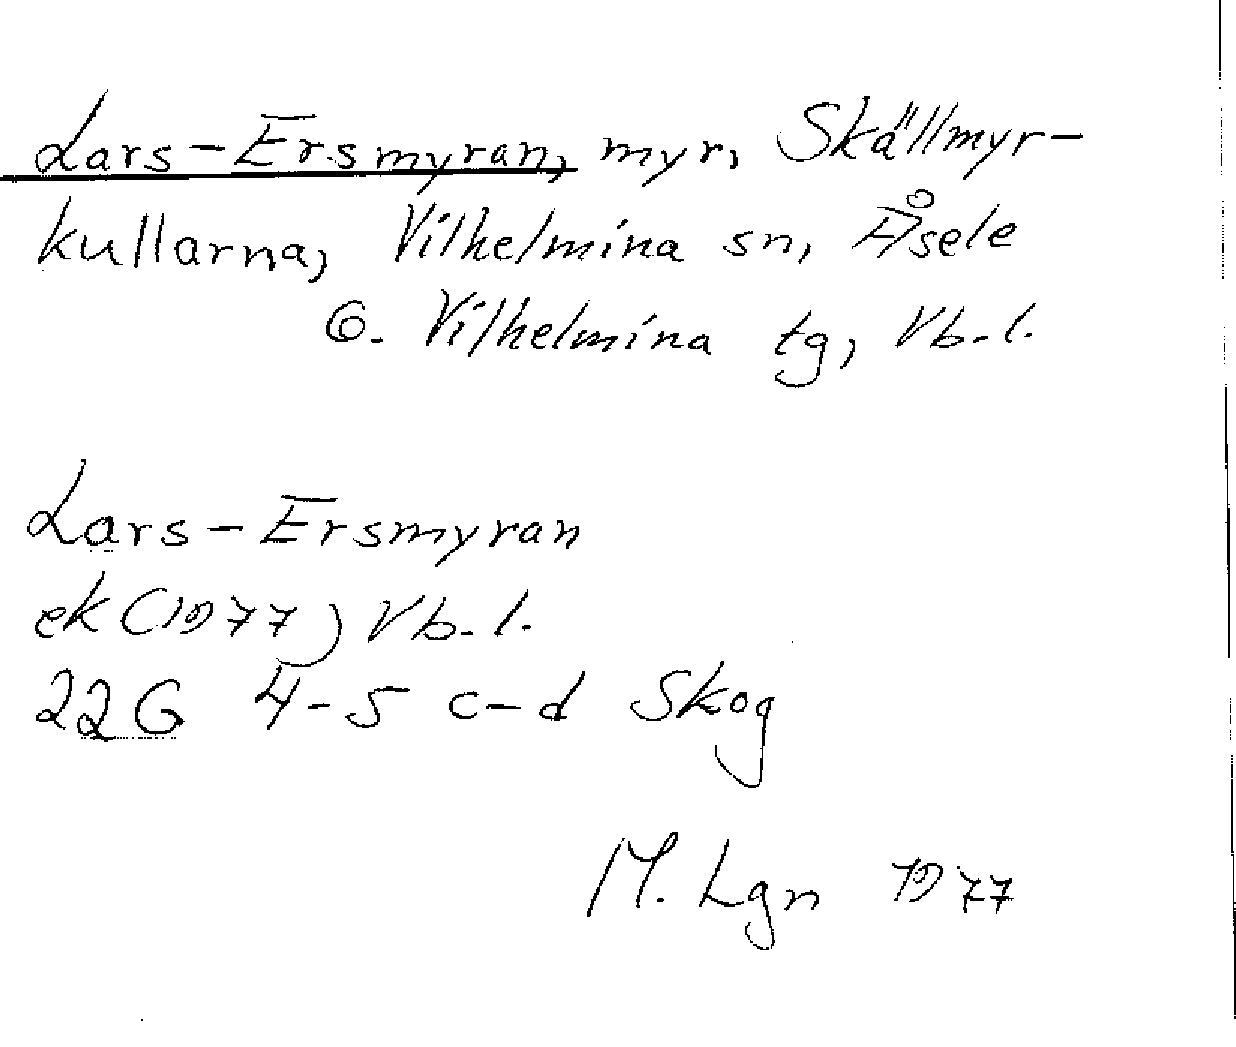 Lars-Ersmyran, myr, Skällmyr-
kullarna, Vilhelmina sn, Åsele
o. Vilhelmina tg, Vb. l.
Lars-Ersmyran
ek (1977) Vb. l.
22G 4-5 c-d Skog
M. Lgn 1977